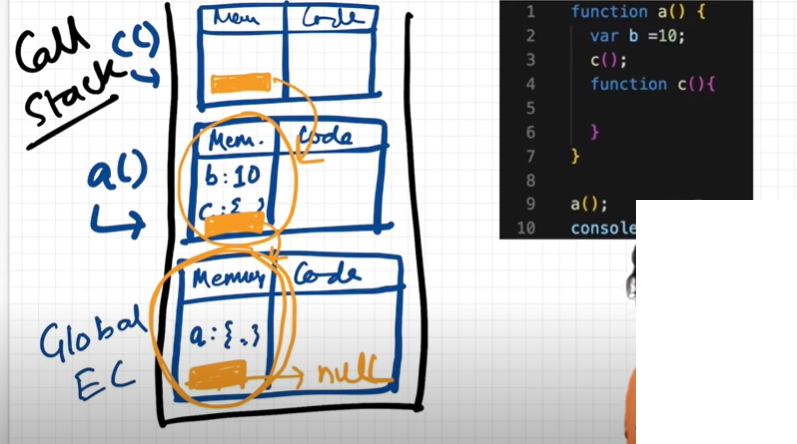 Call
Stack
c()
Mem
Code
a()
Mem.
Code
b:10
c:{ }
Global
EC
Memory
Code
a:{.}
null
1 function a() {
2 var b =10;
3 c();
4 function c(){
5
6 }
7 }
8
9 a();
10 console